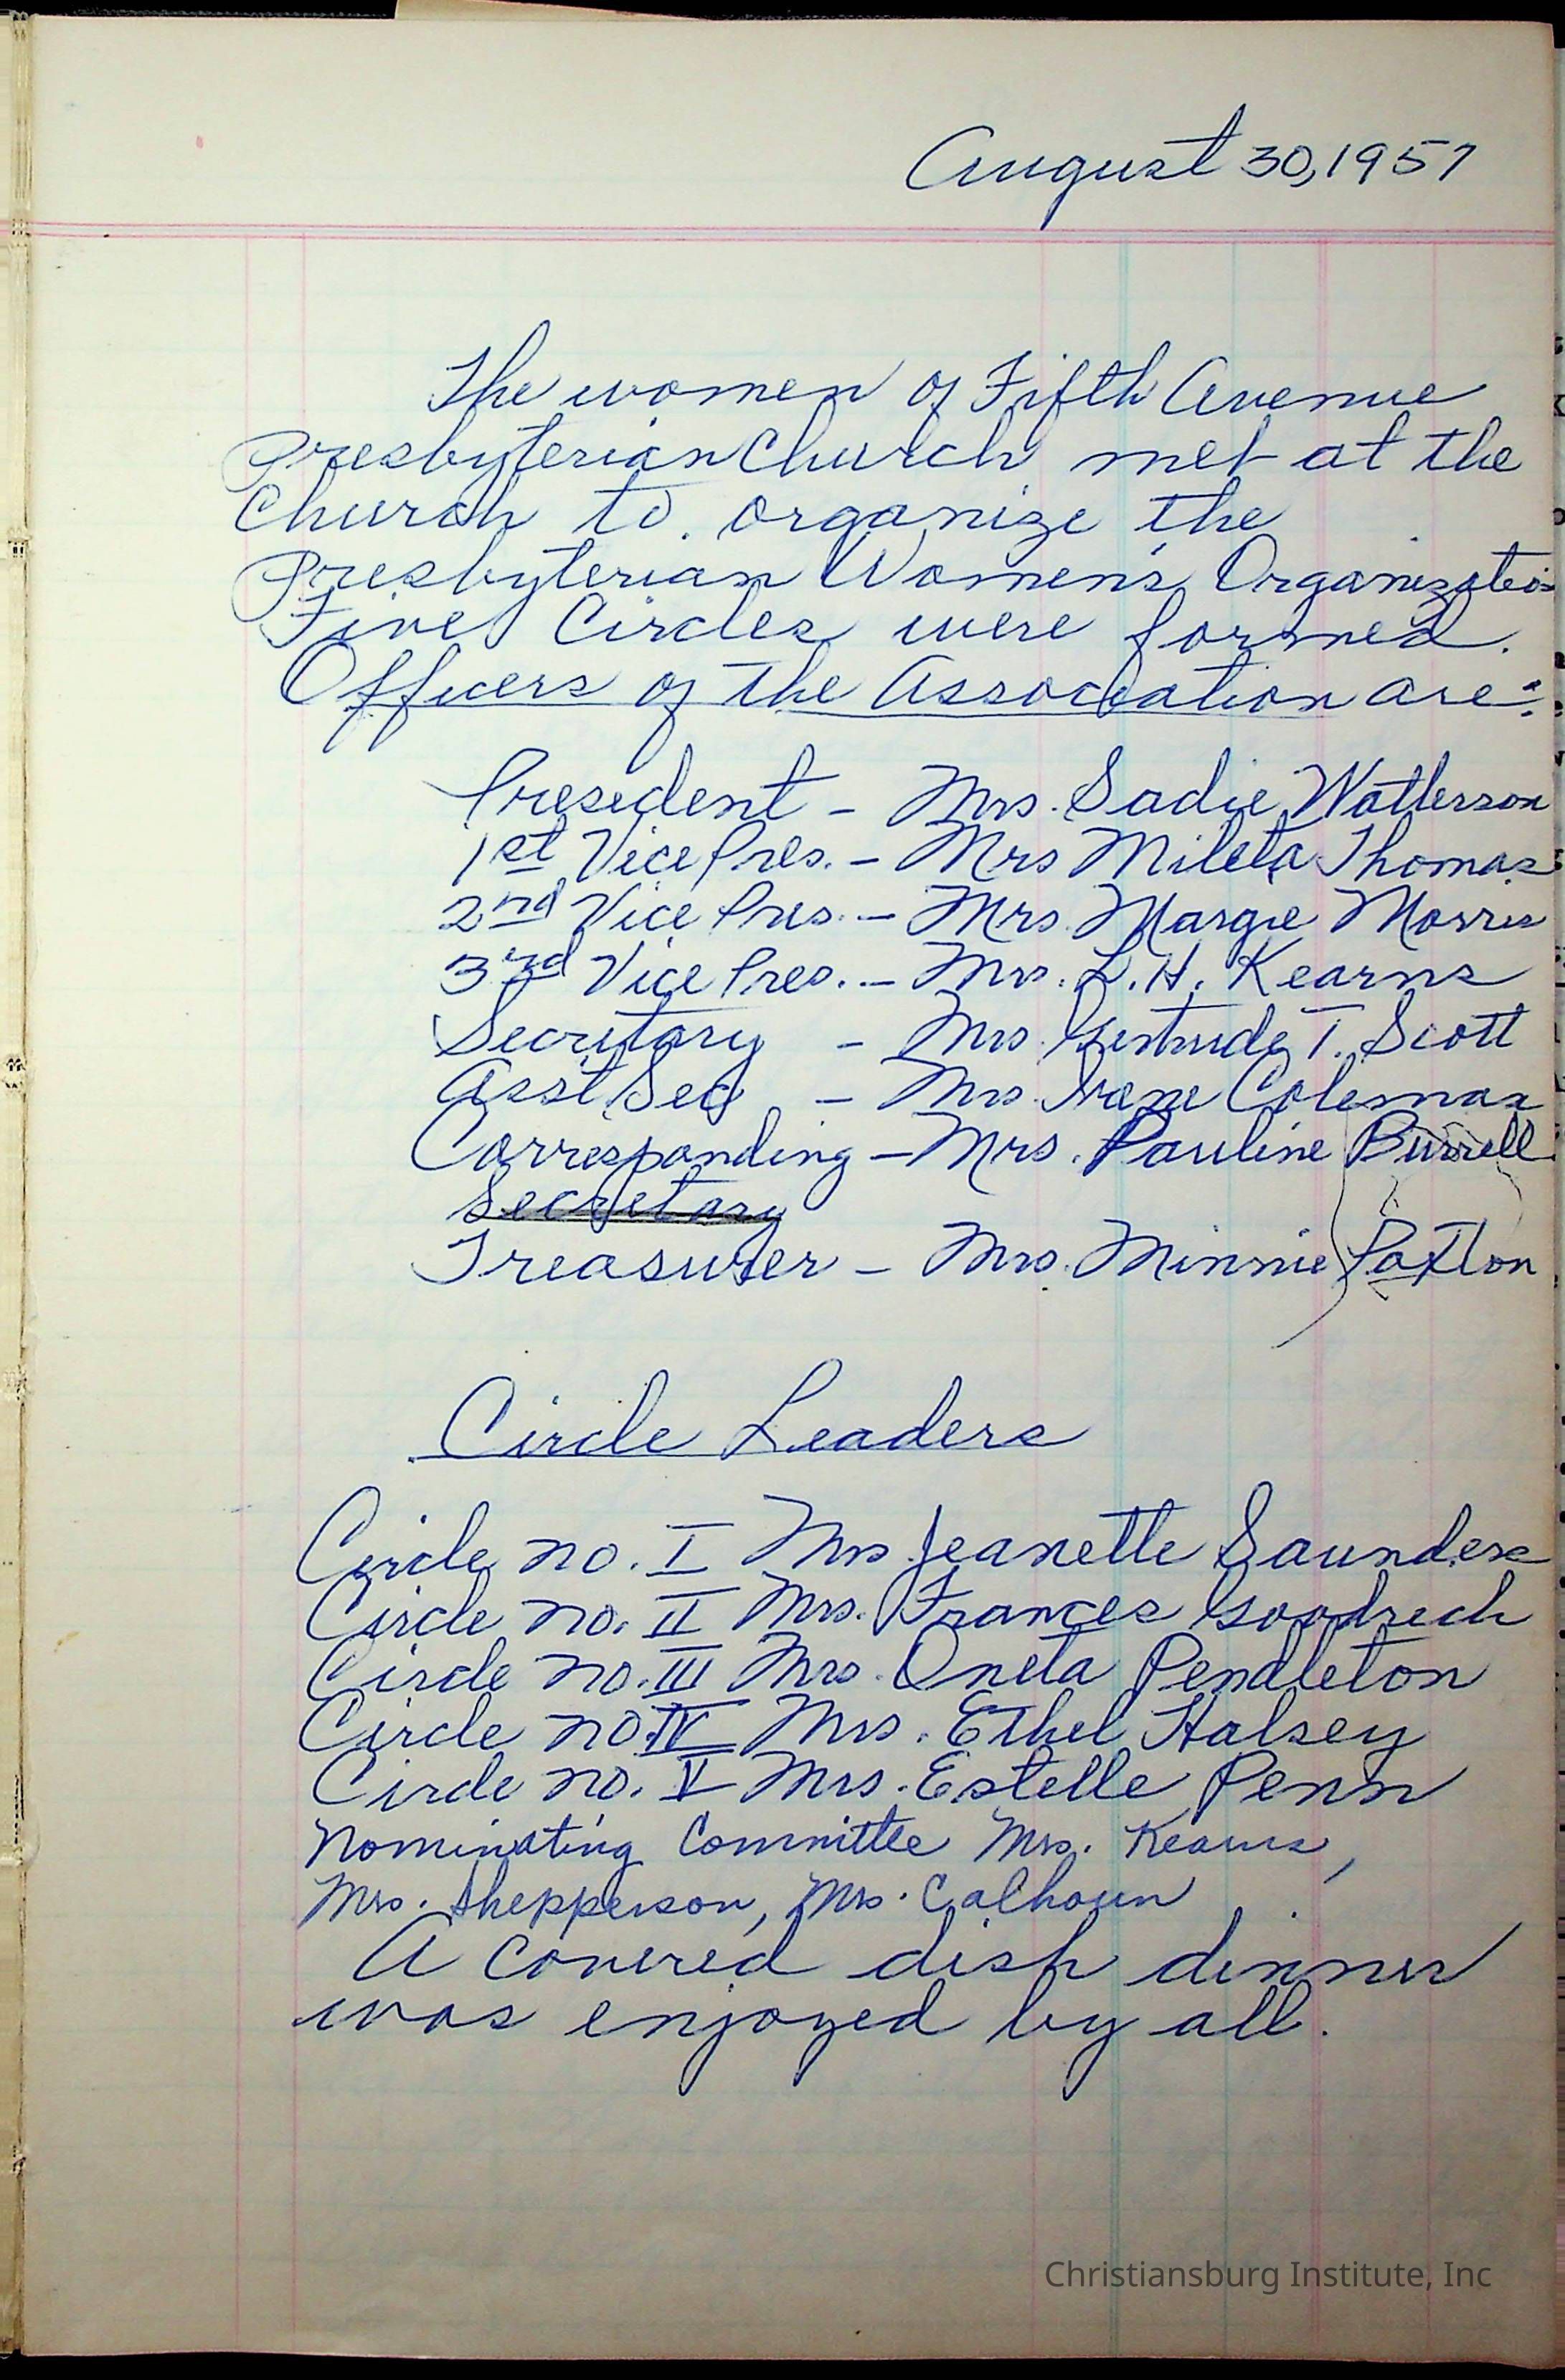 August 30, 1957
The women of Fifth Avenue
Presbyterian Church met at the
Church to organize the
Presbyterian Women's Organization
Five Circles were formed.
Officers of the Association are:
President - Mrs. Sadie Watterson
1st Vice Pres. - Mrs Mileta Thomas
2nd Vice Pres. - Mrs. Margie Morris
3rd Vice Pres. - Mrs. L. H. Kearns
Secretary - Mrs. Gertrude T. Scott
Asst Sec - Mrs. Coleman
Corresponding - Mrs. Pauline Burrell
Secretary
Treasurer - Mrs. Minnie Paxton
Circle Leaders
Circle no. I Mrs Jeanette Saunders
Circle no. II Mrs. Frances Goodrich
Circle no. III Mrs. Oneta Pendleton
Circle no IV Mrs. Ethel Halsey
Circle no. V Mrs. Estelle Penn
Nominating Committee Mrs. Kearns,
Mrs. Shepperson, Mrs. Calhoun
A covered dish dinner
was enjoyed by all.
Christiansburg Institute, Inc